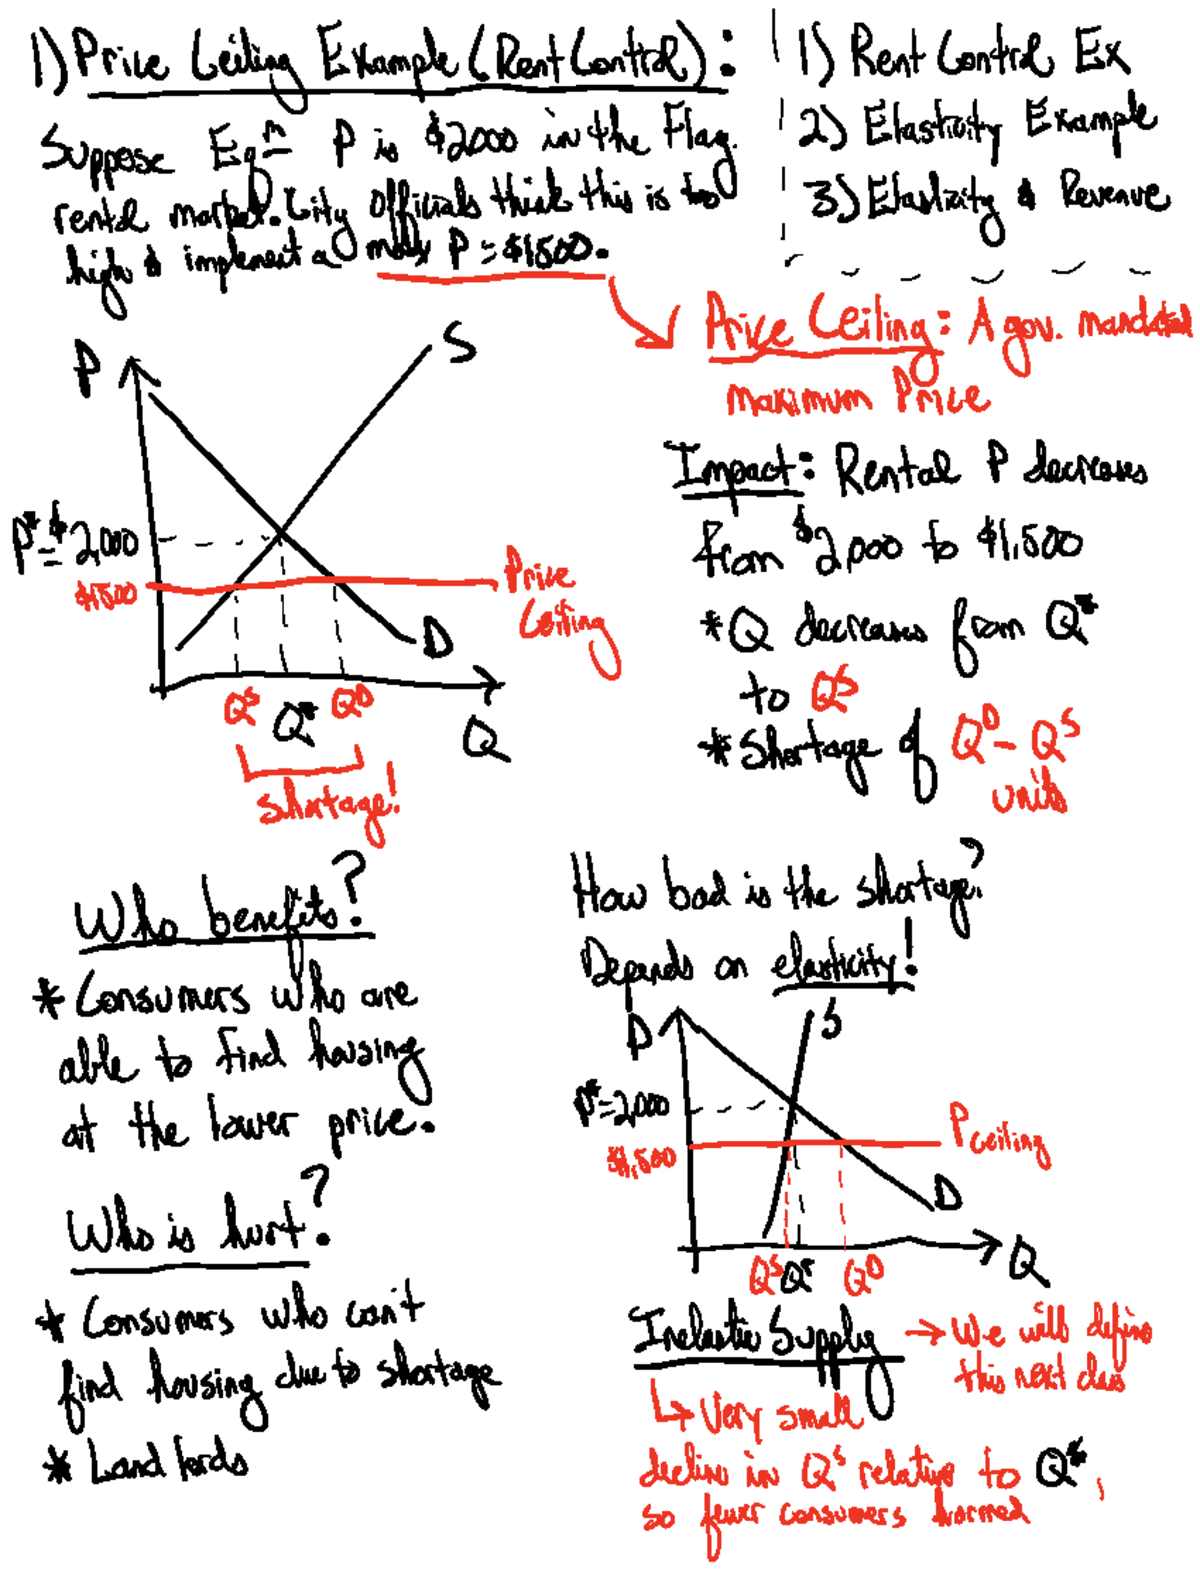 1) Price Ceiling Example (Rent Control):
Suppose Eqm P is $2000 in the Flag.
rental market. City officials think this is too
high & implement a max P = $1500.
1) Rent Control Ex
2) Elasticity Example
3) Elasticity & Revenue
Price Ceiling: A gov. mandated
maximum Price
P
S
P* = $2,000
$1500
Price
Ceiling
D
Q^S Q* Q^D
Q
Shortage!
Impact: Rental P decreases
from $2,000 to $1,500
* Q decreases from Q*
to Q^S
* Shortage of Q^D - Q^S
units
Who benefits?
* Consumers who are
able to find housing
at the lower price.
Who is hurt?
* Consumers who can't
find housing due to shortage
* Landlords
How bad is the shortage?
Depends on elasticity!
P
S
P* = 2,000
$1,500
P ceiling
D
Q^S Q* Q^D
Q
Inelastic Supply → We will define
this next class
↳ Very small
decline in Q^S relative to Q*,
so fewer consumers harmed